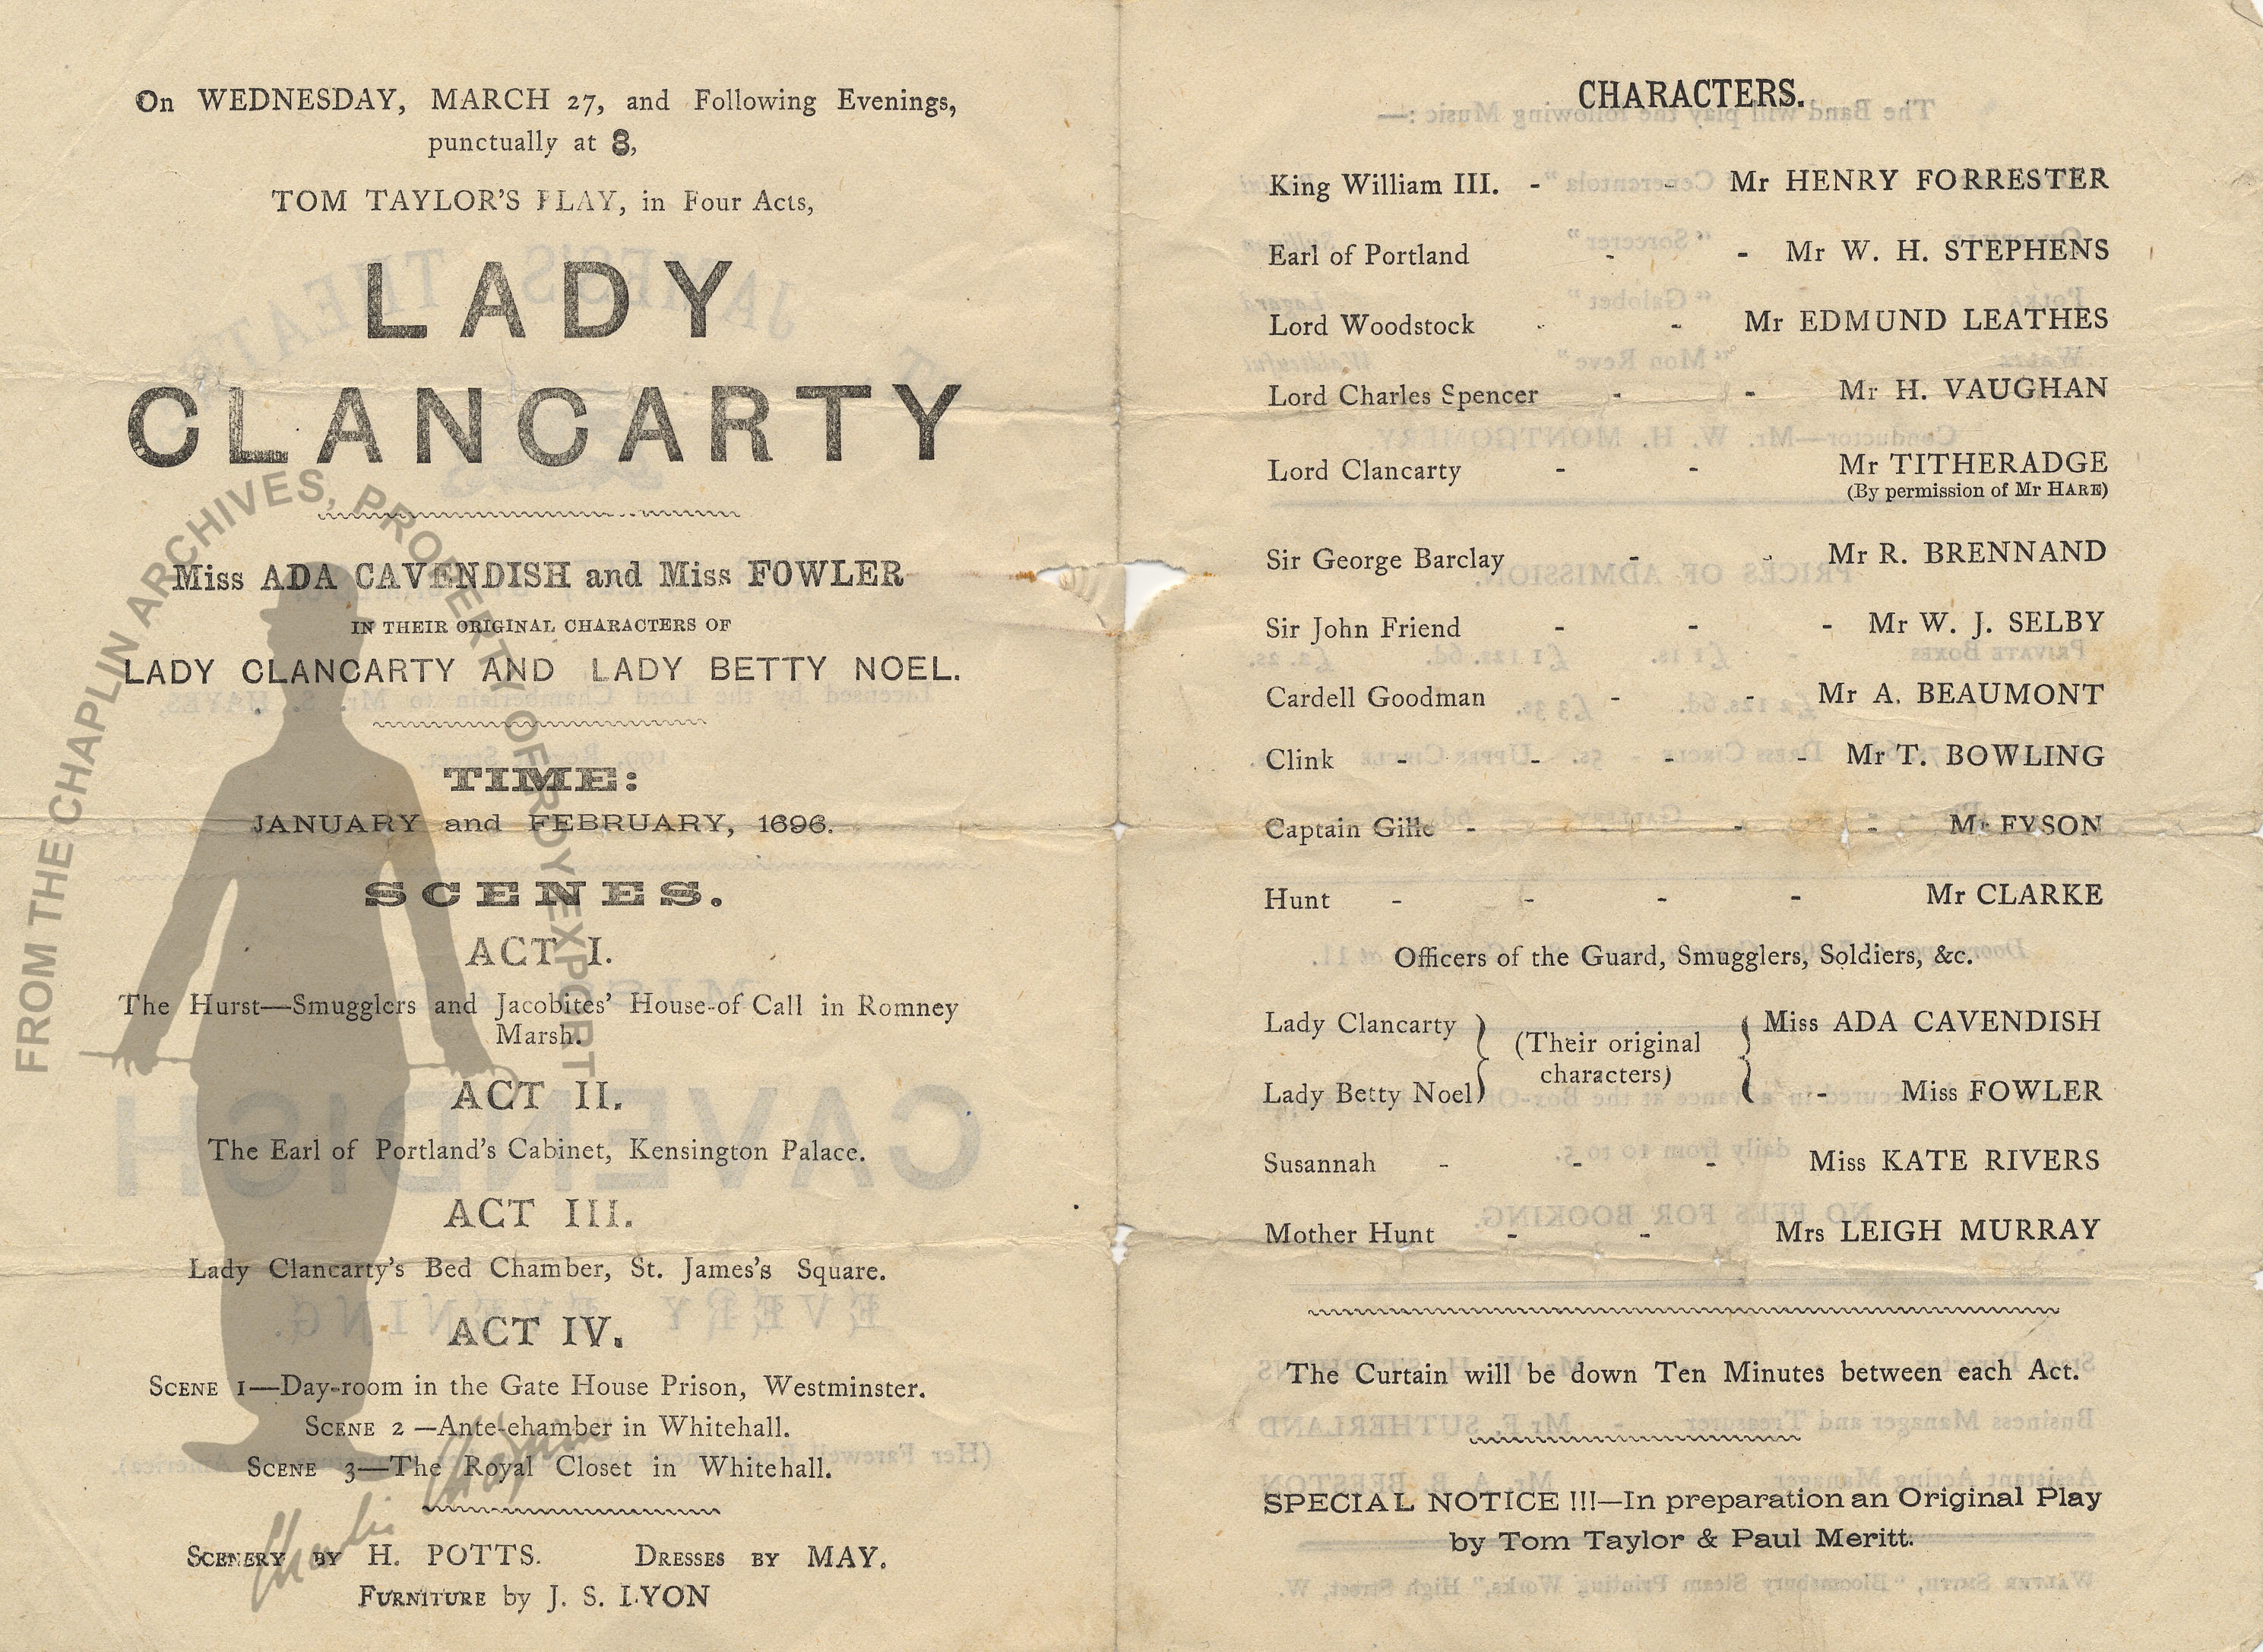 On WEDNESDAY, MARCH 27, and Following Evenings,
punctually at 8,
TOM TAYLOR'S PLAY, in Four Acts,
LADY
CLANCARTY
Miss ADA CAVENDISH and Miss FOWLER
IN THEIR ORIGINAL CHARACTERS OF
LADY CLANCARTY AND LADY BETTY NOEL.
TIME:
JANUARY and FEBRUARY, 1696.
SCENES.
ACT I.
The Hurst—Smugglers and Jacobites' House-of Call in Romney
Marsh.
ACT II.
The Earl of Portland's Cabinet, Kensington Palace.
ACT III.
Lady Clancarty's Bed Chamber, St. James's Square.
ACT IV.
SCENE 1—Day-room in the Gate House Prison, Westminster.
SCENE 2—Ante-ehamber in Whitehall.
SCENE 3—The Royal Closet in Whitehall.
SCENERY BY H. POTTS. DRESSES BY MAY.
FURNITURE by J. S. LYON
FROM THE CHAPLIN ARCHIVES, PROPERTY OF ROY EXPORT
Charlie Chaplin
CHARACTERS.
King William III. - - Mr HENRY FORRESTER
Earl of Portland - - Mr W. H. STEPHENS
Lord Woodstock - - Mr EDMUND LEATHES
Lord Charles Spencer - - Mr H. VAUGHAN
Lord Clancarty - - Mr TITHERADGE
(By permission of Mr HARE)
Sir George Barclay - - Mr R. BRENNAND
Sir John Friend - - - Mr W. J. SELBY
Cardell Goodman - - Mr A. BEAUMONT
Clink - - - - Mr T. BOWLING
Captain Gille - - - - Mr FYSON
Hunt - - - - Mr CLARKE
Officers of the Guard, Smugglers, Soldiers, &c.
Lady Clancarty } (Their original { Miss ADA CAVENDISH
characters)
Lady Betty Noel - Miss FOWLER
Susannah - - - Miss KATE RIVERS
Mother Hunt - - Mrs LEIGH MURRAY
The Curtain will be down Ten Minutes between each Act.
SPECIAL NOTICE !!!—In preparation an Original Play
by Tom Taylor & Paul Meritt.